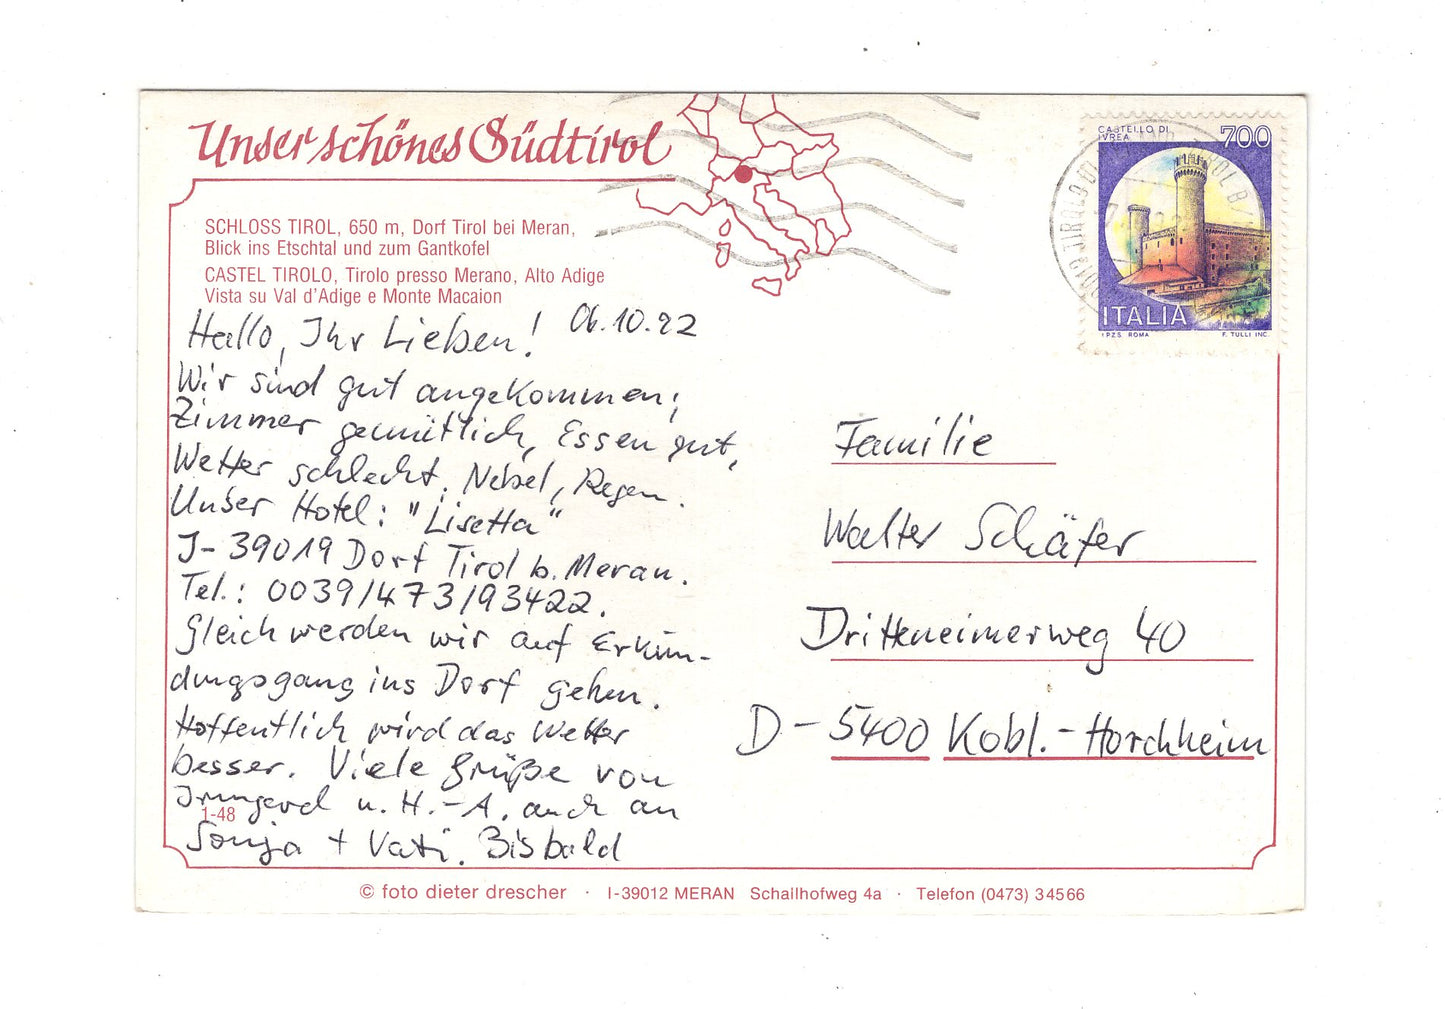 Unser schönes Südtirol
SCHLOSS TIROL, 650 m, Dorf Tirol bei Meran,
Blick ins Etschtal und zum Gantkofel
CASTEL TIROLO, Tirolo presso Merano, Alto Adige
Vista su Val d'Adige e Monte Macaion
06.10.92
Hallo, Ihr Lieben!
Wir sind gut angekommen;
Zimmer gemütlich, Essen gut,
Wetter schlecht, Nebel, Regen.
Unser Hotel: "Lisetta"
I-39019 Dorf Tirol b. Meran.
Tel.: 0039/473/93422.
Gleich werden wir auf Erkun-
dungsgang ins Dorf gehen.
Hoffentlich wird das Wetter
besser. Viele Grüße von
Irmgard u. H.-A. auch an
Sonja + Vati. Bis bald
1-48
CASTELLO DI
IVREA
700
ITALIA
I.P.Z.S. ROMA
F. TULLI INC.
Familie
Walter Schäfer
Dritteneimerweg 40
D-5400 Kobl.-Horchheim
© foto dieter drescher · I-39012 MERAN Schallhofweg 4a · Telefon (0473) 34566